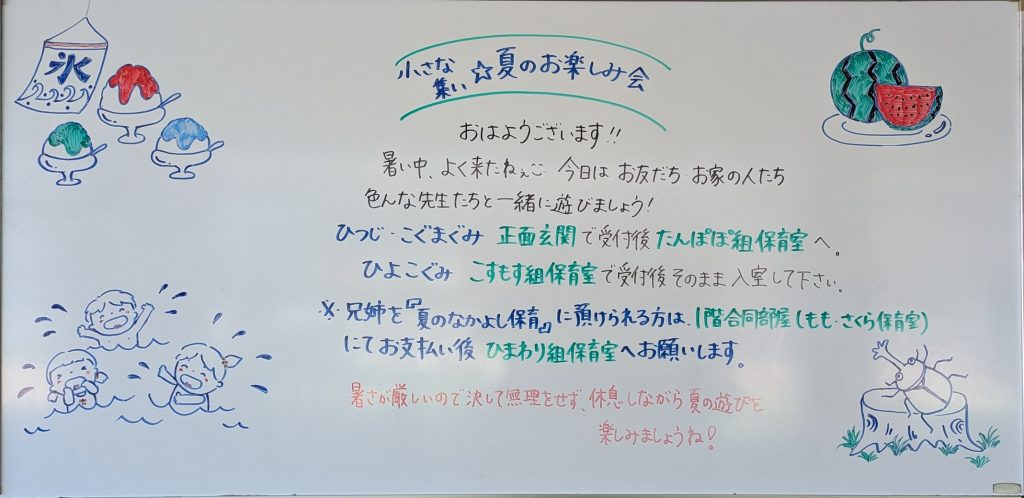 氷
小さな集い☆夏のお楽しみ会
おはようございます!!
暑い中、よく来たねぇ 今日は お友だち お家の人たち
色んな先生たちと一緒に遊びましょう!
ひつじ・こぐまぐみ 正面玄関で受付後 たんぽぽ組保育室へ。
ひよこぐみ こすもす組保育室で受付後そのまま入室して下さい。
※兄姉を『夏のなかよし保育』に預けられる方は、1階合同部屋(もも・さくら保育室)
にてお支払い後 ひまわり組保育室へお願いします。
暑さが厳しいので決して無理をせず、休息しながら夏の遊びを
楽しみましょうね!